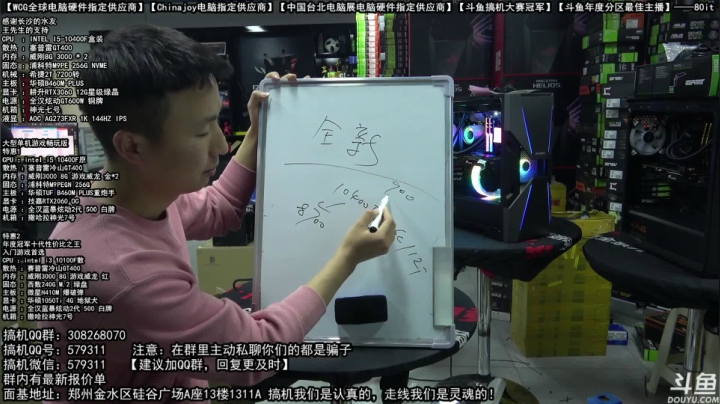 【WCG全球电脑硬件指定供应商】【Chinajoy电脑指定供应商】【中国台北电脑展电脑硬件指定供应商】【斗鱼搞机大赛冠军】【斗鱼年度分区最佳主播】——80it
感谢长沙的水友
王先生的支持
CPU ：INTEL I5-10400F盒装
散热 ：赛普雷GT400
内存 ：威刚8G 3000 * 2
固态：浦科特M9PE 256G NVME
机械 ：希捷2T 7200转
主板 ：华硕B460M PLUS
显卡 ：耕升RTX3060 12G星级绿晶
电源 ：全汉炫动GT600W 铜牌
机箱 ：神光七号
液显 ：AOC AG273FXR 1K 144HZ IPS
大型单机游戏畅玩版
特惠1
CPU：intel i5 10400F原
散热 ：赛普雷冷山GT400
内存 ：威刚3000 8G 游戏威龙 金*2
固态 ：浦科特M9PEGN 256G
主板 ：华硕TUF B460M PLUS重炮手
显卡 ：技嘉RTX2060 OC
电源 ：全汉蓝暴炫动2代 500 白牌
机箱 ：撒哈拉神光7号
特惠2
年度冠军十代性价比之王
入门游戏首选
CPU：intel i3 10100F散
散热 ：赛普雷冷山GT400
内存 ：威刚3000 8G 游戏威龙 红
固态 ：西数240G M.2 绿盘
主板 ：微星H410M 爆破弹
显卡 ：华硕1050Ti 4G 地狱犬
电源 ：全汉蓝暴炫动2代 500 白牌
机箱 ：撒哈拉神光7号
搞机QQ群：308268070
搞机QQ号：579311 注意：在群里主动私聊你们的都是骗子
搞机微信：579311 【建议加QQ群，回复更及时】
群内有最新报价单
面基地址：郑州金水区硅谷广场A座13楼1311A 搞机我们是认真的，走线我们是灵魂的！
全新
斗鱼
DOUYU.COM